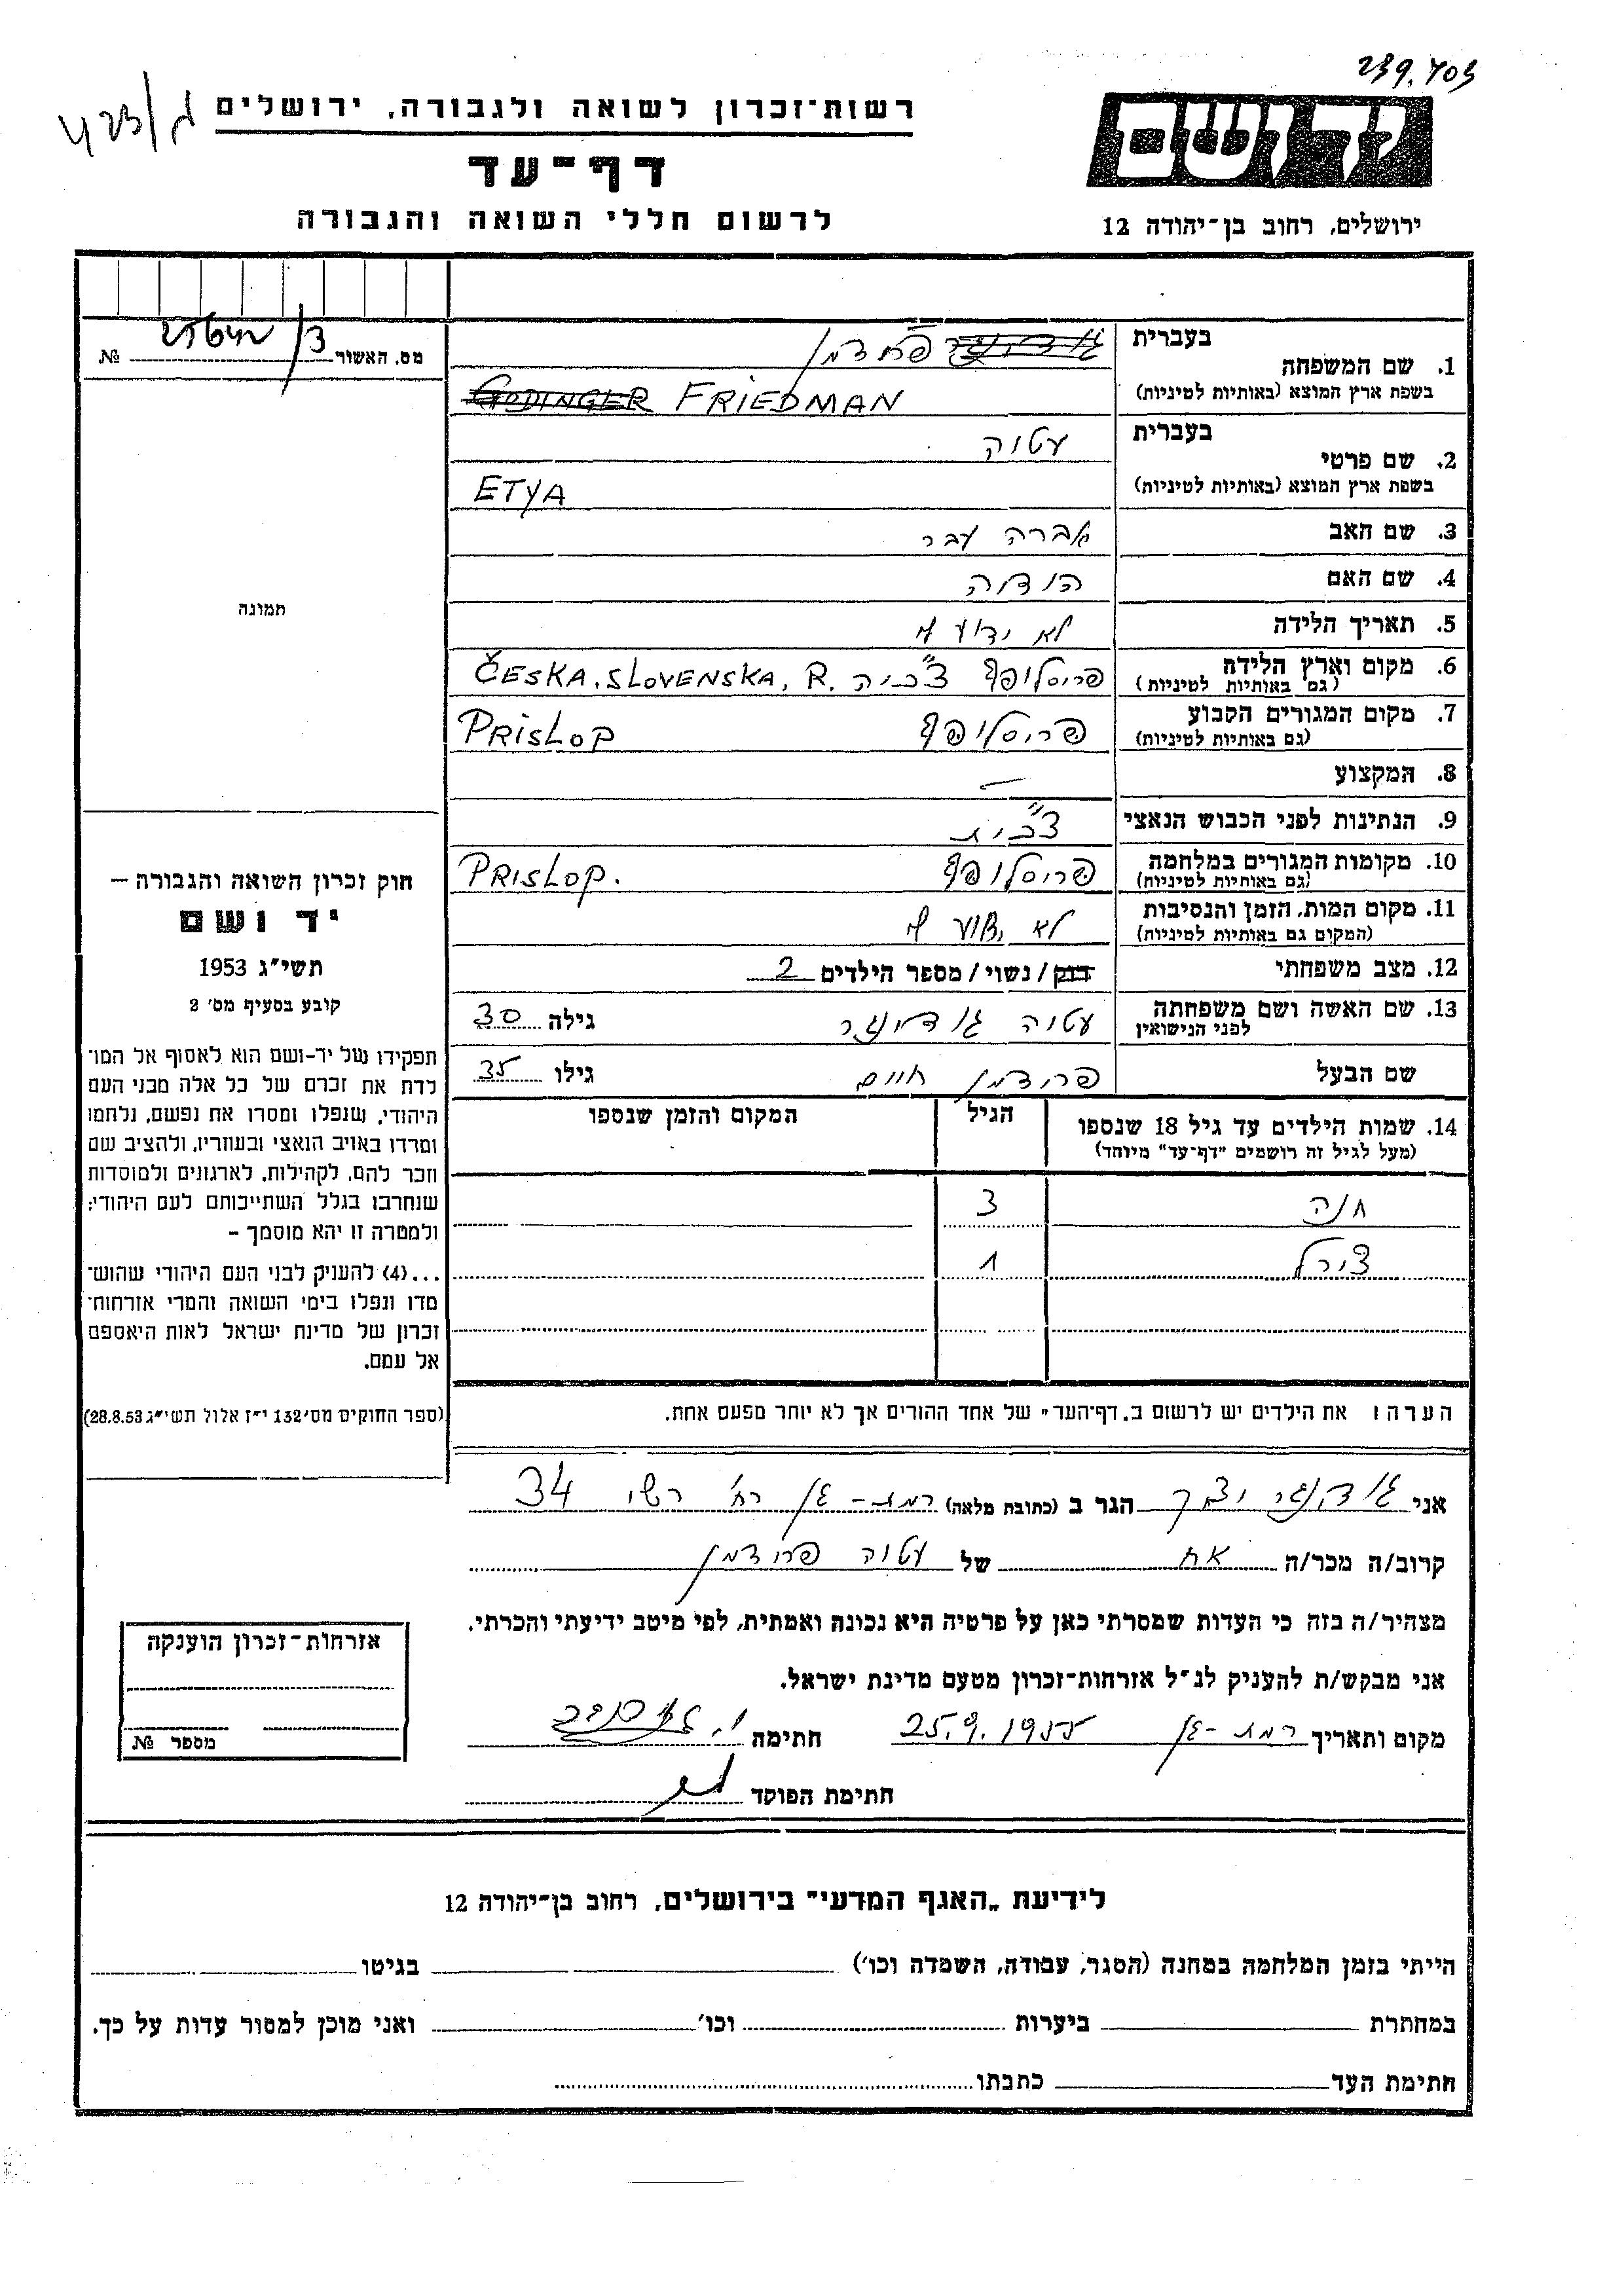 239.703
רשות-זכרון לשואה ולגבורה, ירושלים
דף-עד
לרשום חללי השואה והגבורה
יד ושם
ירושלים, רחוב בן-יהודה 12
מס. האשור № 
1. שם המשפחה
בעברית
פרידמן
בשפת ארץ המוצא (באותיות לטיניות)
GODINGER FRIEDMAN
2. שם פרטי
בעברית
עטיה
בשפת ארץ המוצא (באותיות לטיניות)
ETYA
3. שם האב
4. שם האם הודיה
5. תאריך הלידה לא ידוע לי
6. מקום וארץ הלידה (גם באותיות לטיניות) פריסלופ צ"כיה ČESKA. SLOVENSKA. R.
7. מקום המגורים הקבוע (גם באותיות לטיניות) פריסלופ PRISLOP
8. המקצוע —
9. הנתינות לפני הכבוש הנאצי צ"כית
10. מקומות המגורים במלחמה (גם באותיות לטיניות) פריסלופ PRISLOP.
11. מקום המות, הזמן והנסיבות (המקום גם באותיות לטיניות) לא ידוע לי
12. מצב משפחתי רוק/נשוי/מספר הילדים 2
13. שם האשה ושם משפחתה לפני הנישואין עטיה גודינגר גילה 30
שם הבעל פרידמן חיים גילו 35
14. שמות הילדים עד גיל 18 שנספו (מעל לגיל זה רושמים "דף-עד" מיוחד) הגיל המקום והזמן שנספו
חנה 3
צירל 1
הערה: את הילדים יש לרשום ב„דף-העד" של אחד ההורים אך לא יותר מפעם אחת.
תמונה
חוק זכרון השואה והגבורה —
יד ושם
תשי"ג 1953
קובע בסעיף מס' 2
תפקידו של יד-ושם הוא לאסוף אל המו־
לדת את זכרם של כל אלה מבני העם
היהודי, שנפלו ומסרו את נפשם, נלחמו
ומרדו באויב הנאצי ובעוזריו, ולהציב שם
וזכר להם, לקהילות, לארגונים ולמוסדות
שנחרבו בגלל השתייכותם לעם היהודי;
ולמטרה זו יהא מוסמך –
...(4) להעניק לבני העם היהודי שהוש־
מדו ונפלו בימי השואה והמרי אזרחות־
זכרון של מדינת ישראל לאות היאספם
אל עמם.
(ספר החוקים מס' 132 י"ז אלול תשי"ג 28.8.53)
אני גודינגר יצחק הגר ב (כתובת מלאה) רמת-גן רח' רשי 34
קרוב/ה מכר/ה אח של עטיה פרידמן
מצהיר/ה בזה כי העדות שמסרתי כאן על פרטיה היא נכונה ואמתית, לפי מיטב ידיעתי והכרתי.
אני מבקש/ת להעניק לנ"ל אזרחות-זכרון מטעם מדינת ישראל.
מקום ותאריך רמת-גן 25.9.1955 חתימה
חתימת הפוקד
אזרחות-זכרון הוענקה
מספר №
לידיעת „האגף המדעי" בירושלים, רחוב בן-יהודה 12
הייתי בזמן המלחמה במחנה (הסגר, עבודה, השמדה וכו') בגיטו
במחתרת ביערות וכו' ואני מוכן למסור עדות על כך.
חתימת העד כתבתו